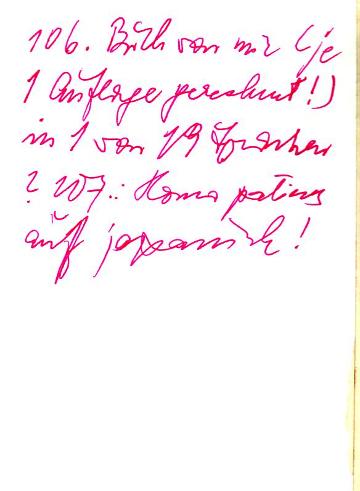 106. Buch von mir (je
1 Auflage gerechnet!)
in 1 von 19 Sprachen
? 107.: Homo patiens
auf japanisch!